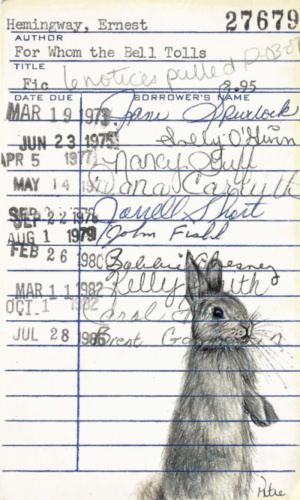 Hemingway, Ernest 27679
AUTHOR
For Whom the Bell Tolls
TITLE
Fic 6 notices pulled 8.95
DATE DUE BORROWER'S NAME
MAR 19 1975 Jane Spurlock
JUN 23 1975 Sally O'Guinn
APR 5 1977 Nancy
MAY 14 Dana
SEP 22 1978 Darrell Short
AUG 1 1979 John Field
FEB 26 1980 Bobbie Chesney
MAR 11 1982 Kelly Smith
OCT 1 1982 Carol
JUL 28 1986 Brent